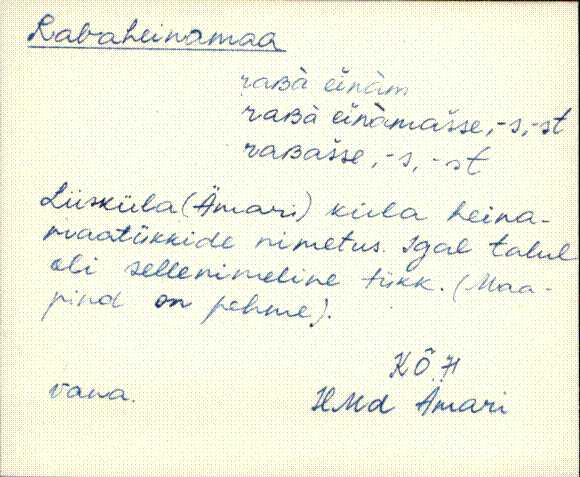 Rabaheinamaa
raʙà eìnàm
raʙà eìnàmašse, -s, -st
raʙašse, -s, -st
Liisküla (Ämari) küla heina-
maatükkide nimetus. Igal talul
oli sellenimeline tükk. (Maa-
pind on pehme).
KÕH
vana.
HMd Ämari